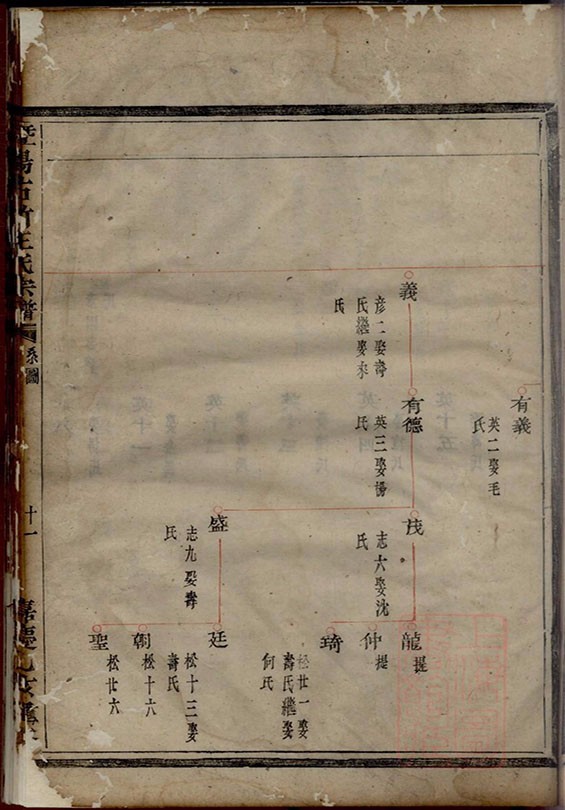 有義
英二娶毛
氏
義
彦二娶壽
氏繼娶朱
氏
有德
英三娶楊
氏
茂
志六娶沈
氏
盛
志九娶壽
氏
龍
提
仲
提
琦
松廿一娶
壽氏繼娶
何氏
廷
松十三娶
壽氏
朝
松十六
聖
松廿六
暨陽古竹王氏宗譜
系圖
十一
嘉慶乙亥